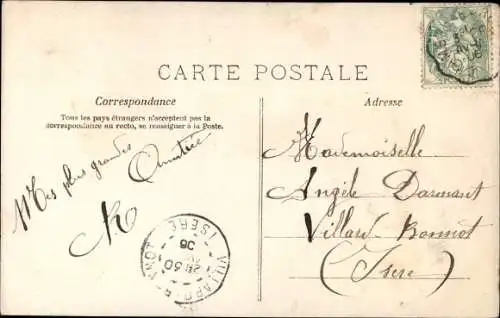 CARTE POSTALE
Correspondance
Tous les pays étrangers n'acceptent pas la
correspondance au recto, se renseigner à la Poste.
Mes plus grandes
Amitiés
Adresse
Mademoiselle
Angèle Darmant
Villard Bonnot
(Isère)
ISERE
06
VILLARD-BONNOT